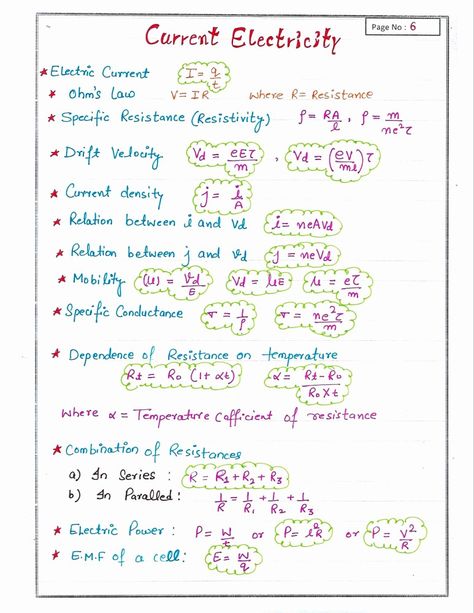 Page No : 6
Current Electricity
★ Electric Current I = q/t
★ Ohm's Law V = IR where R = Resistance
★ Specific Resistance (Resistivity) ρ = RA/l , ρ = m/ne²τ
★ Drift Velocity Vd = eEτ/m , Vd = (eV/ml)τ
★ Current density j = i/A
★ Relation between i and Vd i = neAVd
★ Relation between j and Vd j = neVd
★ Mobility (μ) = Vd/E Vd = μE μ = eτ/m
★ Specific Conductance σ = 1/ρ σ = ne²τ/m
★ Dependence of Resistance on temperature
Rt = Ro (1+αt) α = Rt - Ro/Ro X t
where α = Temperature Cafficient of resistance
★ Combination of Resistances
a) In Series : R = R1 + R2 + R3
b) In Paralled : 1/R = 1/R1 + 1/R2 + 1/R3
★ Electric Power : P = W/t or P = i²R or P = V²/R
★ E.M.F of a cell : E = W/q